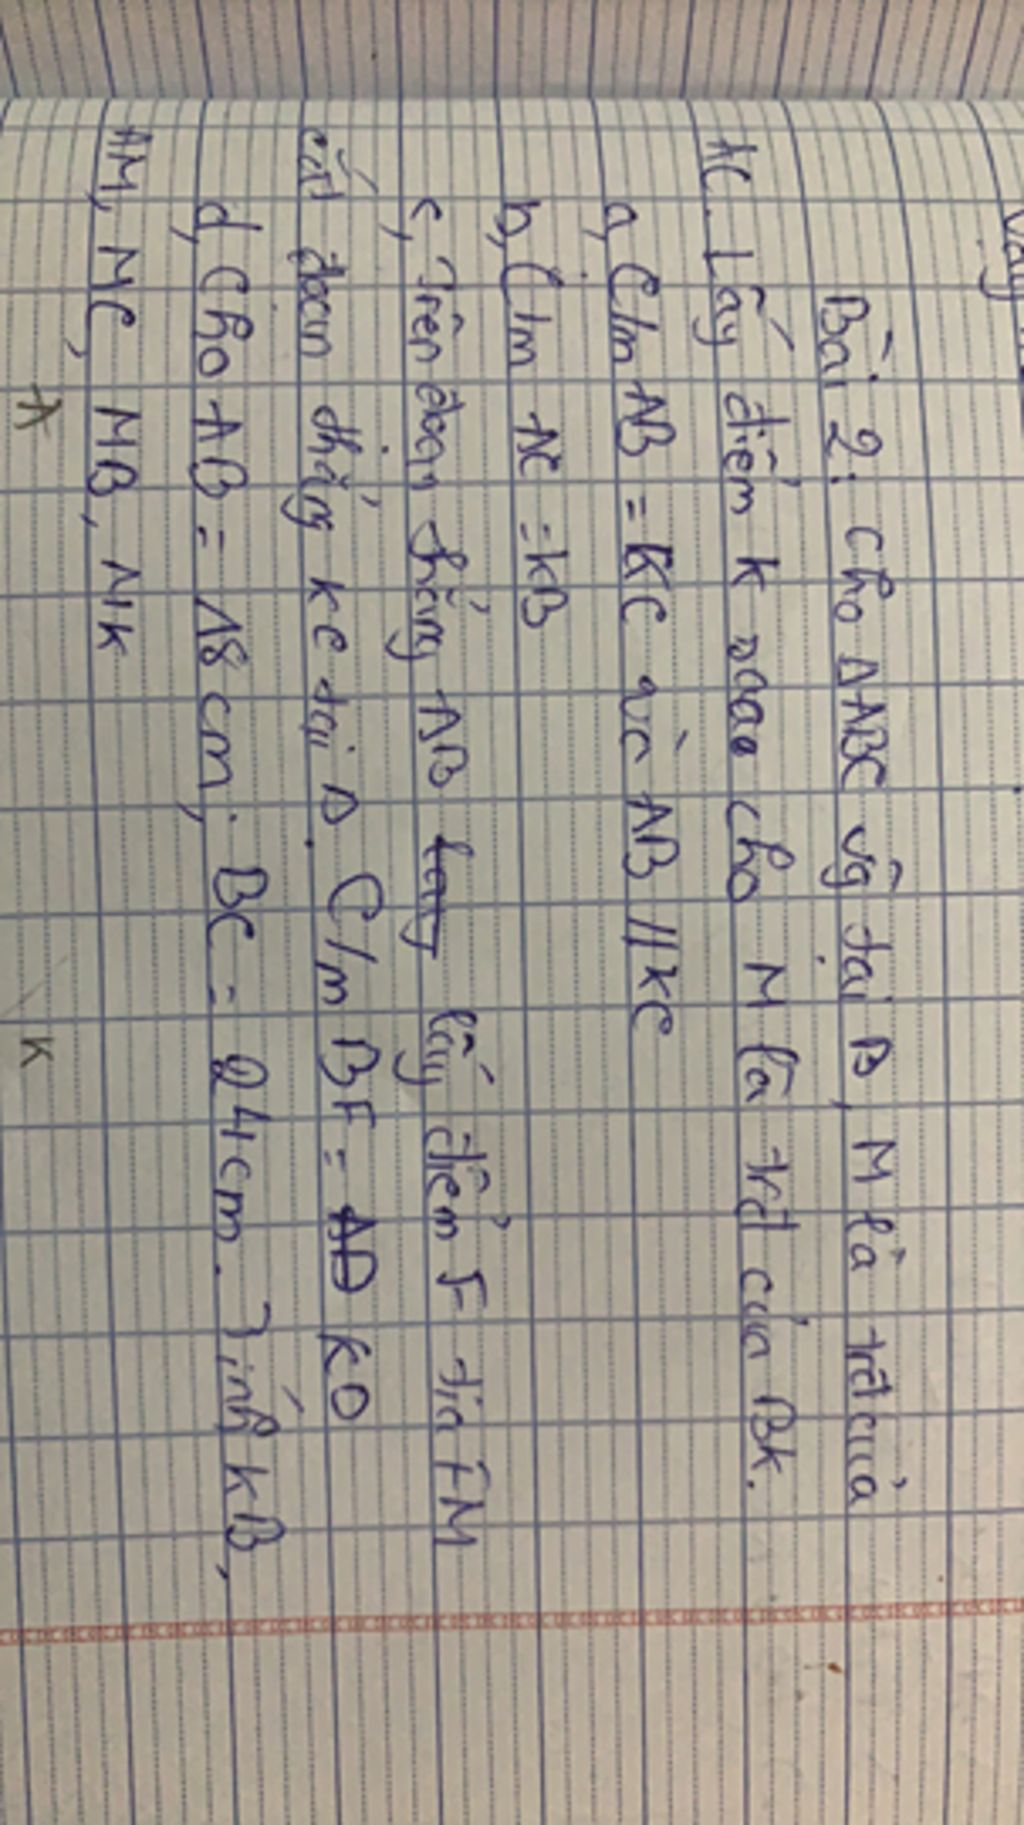 Vậy
Bài 2: Cho ΔABC vg tại B, M là trđ của
AC. Lấy điểm K sao cho M là trđ của BK.
a, C/m AB = KC và AB // KC
b, C/m AC = KB
c, Trên đoạn thẳng AB lấy điểm F tia FM
cắt đoạn thẳng KC tại D. C/m BF = KD
d, Cho AB = 18 cm; BC = 24cm. Tính KB,
AM, MC, MB, MK
A K